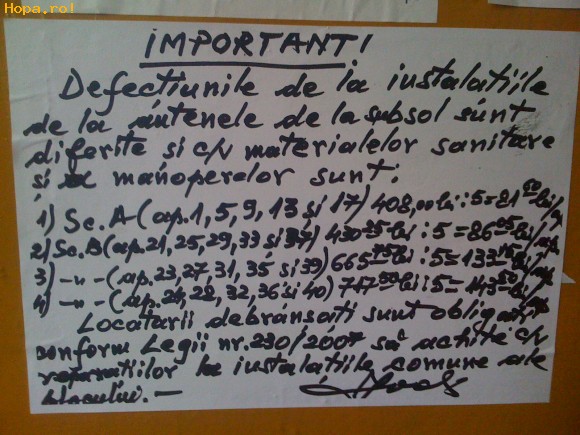 Hopa.ro!
IMPORTANT!
Defectiunile de la instalatiile
de la antenele de la subsol sunt
diferite si c/v materialelor sanitare
si manoperelor sunt:
1) Sc. A (ap. 1, 5, 9, 13 si 17) 408,00 lei : 5 = 81 60 lei/ap
2) Sc. B (ap. 21, 25, 29, 33 si 37) 430 25 lei : 5 = 86 05 lei/ap
3) -"- (ap. 23, 27, 31, 35 si 39) 665 75 lei : 5 = 133 15 lei/ap
4) -"- (ap. 24, 28, 32, 36 si 40) 717 50 lei : 5 = 143 50 lei/ap
Locatarii debransati sunt obligati
conform Legii nr. 230/2007 să achite c/v
reparatiilor la instalatiile comune ale
blocului. -